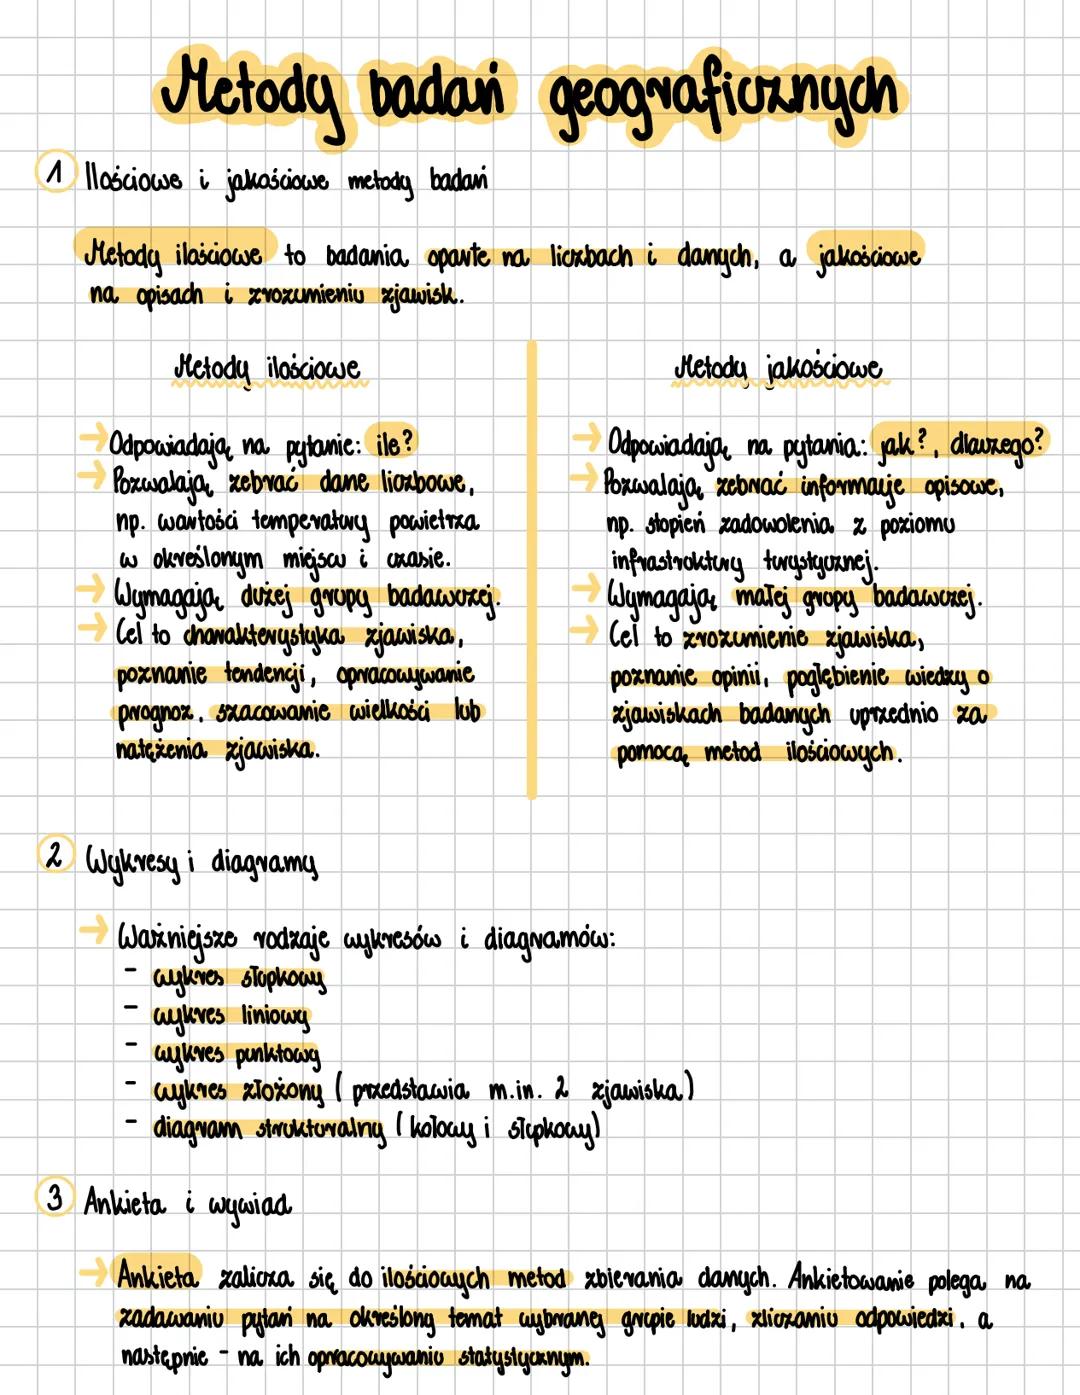 Metody badań geograficznych
1 Ilościowe i jakościowe metody badań
Metody ilościowe to badania oparte na liczbach i danych, a jakościowe
na opisach i zrozumieniu zjawisk.
Metody ilościowe
→ Odpowiadają na pytanie: ile?
→ Pozwalają zebrać dane liczbowe,
np. wartości temperatury powietrza
w określonym miejscu i czasie.
→ Wymagają dużej grupy badawczej.
→ Cel to charakterystyka zjawiska,
poznanie tendencji, opracowywanie
prognoz, szacowanie wielkości lub
natężenia zjawiska.
Metody jakościowe
→ Odpowiadają na pytania: jak?, dlaczego?
→ Pozwalają zebrać informacje opisowe,
np. stopień zadowolenia z poziomu
infrastruktury turystycznej.
→ Wymagają małej grupy badawczej.
→ Cel to zrozumienie zjawiska,
poznanie opinii, pogłębienie wiedzy o
zjawiskach badanych uprzednio za
pomocą metod ilościowych.
2 Wykresy i diagramy
→ Ważniejsze rodzaje wykresów i diagramów:
- wykres słupkowy
- wykres liniowy
- wykres punktowy
- wykres złożony (przedstawia m.in. 2 zjawiska)
- diagram strukturalny (kołowy i słupkowy)
3 Ankieta i wywiad
→ Ankieta zalicza się do ilościowych metod zbierania danych. Ankietowanie polega na
zadawaniu pytań na określony temat wybranej grupie ludzi, zliczaniu odpowiedzi, a
następnie - na ich opracowywaniu statystycznym.